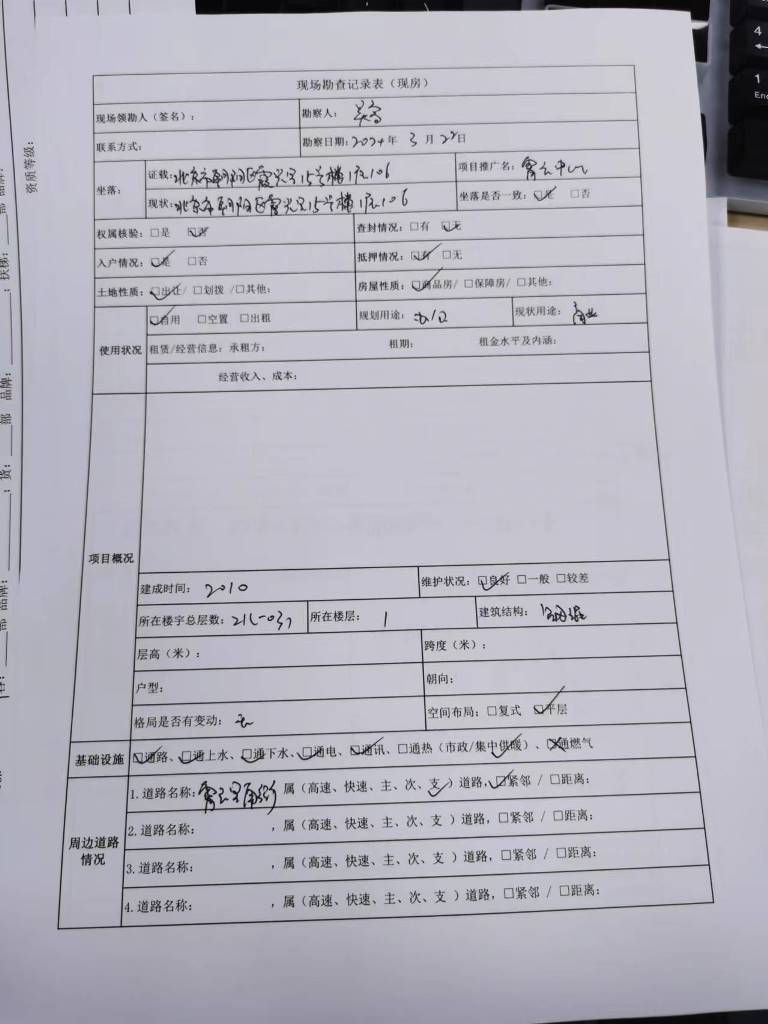 现场勘查记录表（现房）
现场领勘人（签名）： 勘察人：
联系方式： 勘察日期：2024年 3 月 22日
坐落： 证载：北京市朝阳区霄云里15号楼1层106 项目推广名：霄云中心
现状：北京市朝阳区霄云里15号楼1层106 坐落是否一致：☑是 □否
权属核验：□是 ☑否 查封情况：□有 ☑无
入户情况：☑是 □否 抵押情况：☑有 □无
土地性质：☑出让/ □划拨 /□其他： 房屋性质：☑商品房/ □保障房/ □其他：
使用状况 ☑自用 □空置 □出租 规划用途：办公 现状用途：商业
租赁/经营信息：承租方： 租期： 租金水平及内涵：
经营收入、成本：
项目概况
建成时间：2010 维护状况：☑良好 □一般 □较差
所在楼宇总层数：21(-03) 所在楼层：1 建筑结构：
层高（米）： 跨度（米）：
户型： 朝向：
格局是否有变动：无 空间布局：□复式 ☑平层
基础设施 ☑通路、☑通上水、☑通下水、☑通电、☑通讯、□通热（市政/集中供暖）、☒通燃气
周边道路情况 1.道路名称：霄云里南街 属（高速、快速、主、次、支✓）道路，☑紧邻 / □距离：
2.道路名称： ，属（高速、快速、主、次、支 ）道路，□紧邻 / □距离：
3.道路名称： ，属（高速、快速、主、次、支 ）道路，□紧邻 / □距离：
4.道路名称： ，属（高速、快速、主、次、支 ）道路，□紧邻 / □距离：
资质等级：
品牌：
扶梯：
部 品牌：
货：
部 品牌：